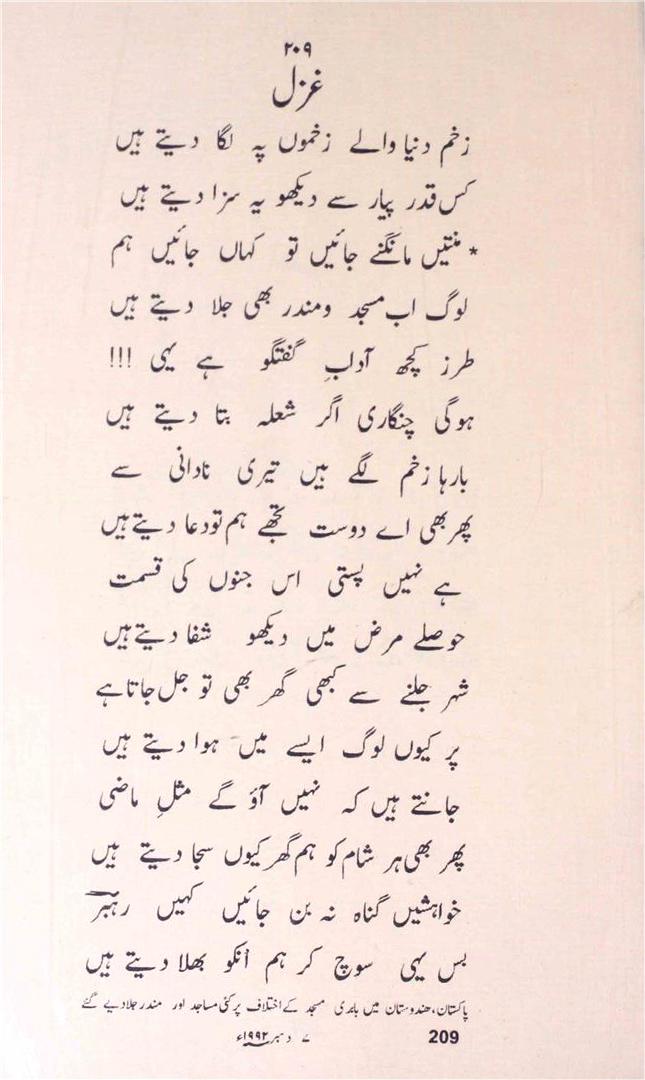 ۲۰۹
غزل
زخم دنیا والے زخموں پہ لگا دیتے ہیں
کس قدر پیار سے دیکھو یہ سزا دیتے ہیں
* منتیں مانگنے جائیں تو کہاں جائیں ہم
لوگ اب مسجد ومندر بھی جلا دیتے ہیں
طرز کچھ آدابِ گفتگو ہے یہی !!!
ہوگی چنگاری اگر شعلہ بتا دیتے ہیں
بارہا زخم لگے ہیں تیری نادانی سے
پھر بھی اے دوست تجھے ہم تو دعا دیتے ہیں
ہے نہیں پستی اس جنوں کی قسمت
حوصلے مرض میں دیکھو شفا دیتے ہیں
شہر جلنے سے کبھی گھر بھی تو جل جاتا ہے
پر کیوں لوگ ایسے میں ہوا دیتے ہیں
جانتے ہیں کہ نہیں آؤ گے مثلِ ماضی
پھر بھی ہر شام کو ہم گھر کیوں سجا دیتے ہیں
خواہشیں گناہ نہ بن جائیں کہیں رہبر
بس یہی سوچ کر ہم انکو بھلا دیتے ہیں
پاکستان، ھندوستان میں بابری مسجد کے اختلاف پر کئی مساجد اور مندر جلا دیے گئے
۷ دسمبر ۱۹۹۲ء
209